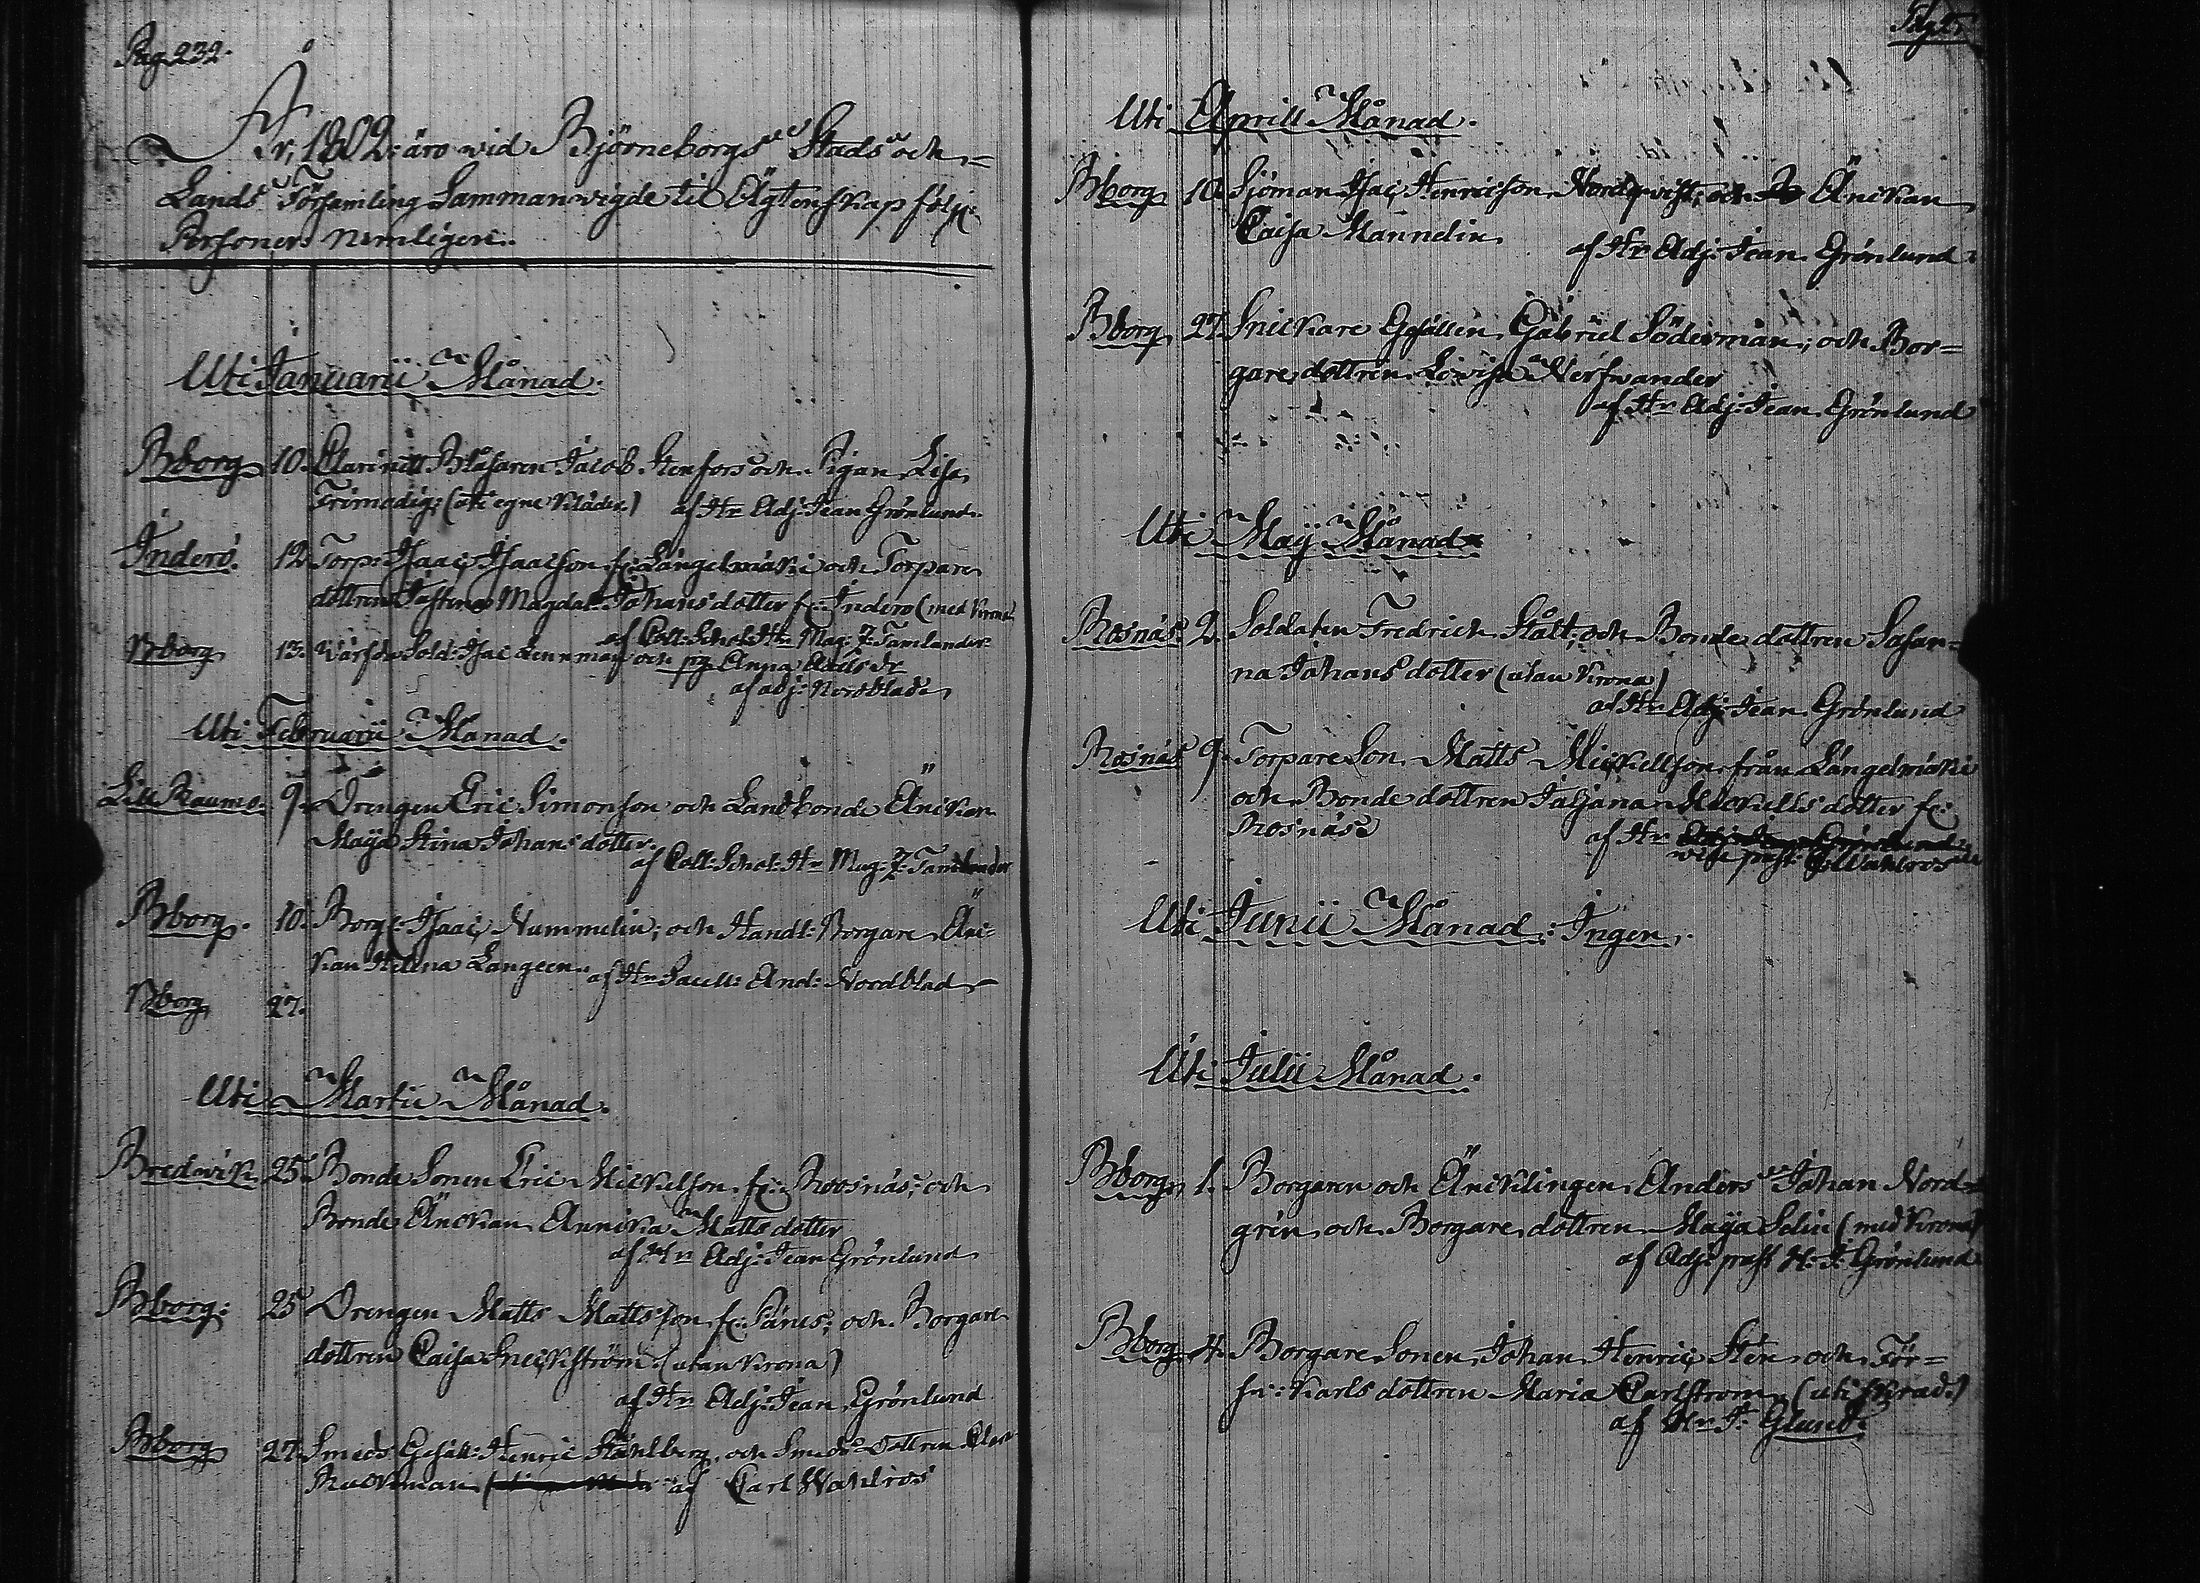 Pag 232.
År, 1802: äro wid Björneborgs Stads och
Lands Församling Sammanvigde til Ägtenskap följ:
Personer nemligen:
Uti Januarii Månad.
Bborg 10. Clarinett Blåsaren Jacob Stenfors och Pigan Lisa
(uti egne Kläder) af Hr Adj: Jean Grönlund.
Inderö. 12 Torp: Isaac Isaacson fr: Längelmäki och Torpare
dottren Justina Magdal: Johans dotter fr: Inderö (med Krona)
af Coll: Schol: Hr Mag: J: Tamlander
Bborg 13. Sold: Isac Lennman och pig Anna
af adj: Nordblad
Uti Februarii Månad.
Lill Raumo. 9. Drengen Eric Simonson och Landbonde Änckan
Maja Stina Johans dotter.
af Coll: Schol: Hr Mag: J: Tamlander
Bborg. 10. Borg: Isaac Nummelin; och Handl: Borgare Än-
kan Helena Langeen. af Hr Sacell: And: Nordblad
Bborg 27.
Uti Martii Månad.
Bredvik 25. Bonde Sonen Eric Mickelson fr: Rosnäs; och
Bonde Änckan Annika Matts dotter
af Hr Adj: Jean Grönlund
Bborg: 25 Drengen Matts Mattsson fr: och Borgare
dottren Caisa Sneckström (utan Krona)
af Hr Adj: Jean Grönlund
Bborg 27. Smeds Gesäll: Henric Ståhlberg, och Smeds Dottren
Backman af Carl Wahlros
Uti Aprill Månad.
Bborg 10. Sjöman Isac Henricson Nordqvist; och Änckan
Caisa Mannelin
af Hr Adj: Jean Grönlund.
Bborg 27. Snickare Gesällen Gabriel Söderman; och Bor=
gare dottren Lovisa Nerfwander
af Hr Adj: Jean Grönlund
Uti Maij Månad
Rosnäs. 2. Soldaten Fredrich Stålt; och Bonde dottren Sasan=
na Johans dotter (utan Krona)
af Hr Adj: Jean Grönlund
Rosnäs 9. Torpare Son Matts Mickellson från Längelmäki
och Bonde dottren Mickells dotter fr:
Rosnäs
af Hr
vice past: Wahlroos
Uti Junii Månad: Ingen.
Uti Julii Månad.
Bborg 1. Borgaren och Äncklingen Anders Johan Nord=
grén och Borgare dottren Maja Solin (med Krona)
af Adj: past H: J: Grönlund
Bborg 4. Borgare Sonen Johan Henric Stén och För=
sv: Karls dottren Maria Carlström
af Hr J: Glund.